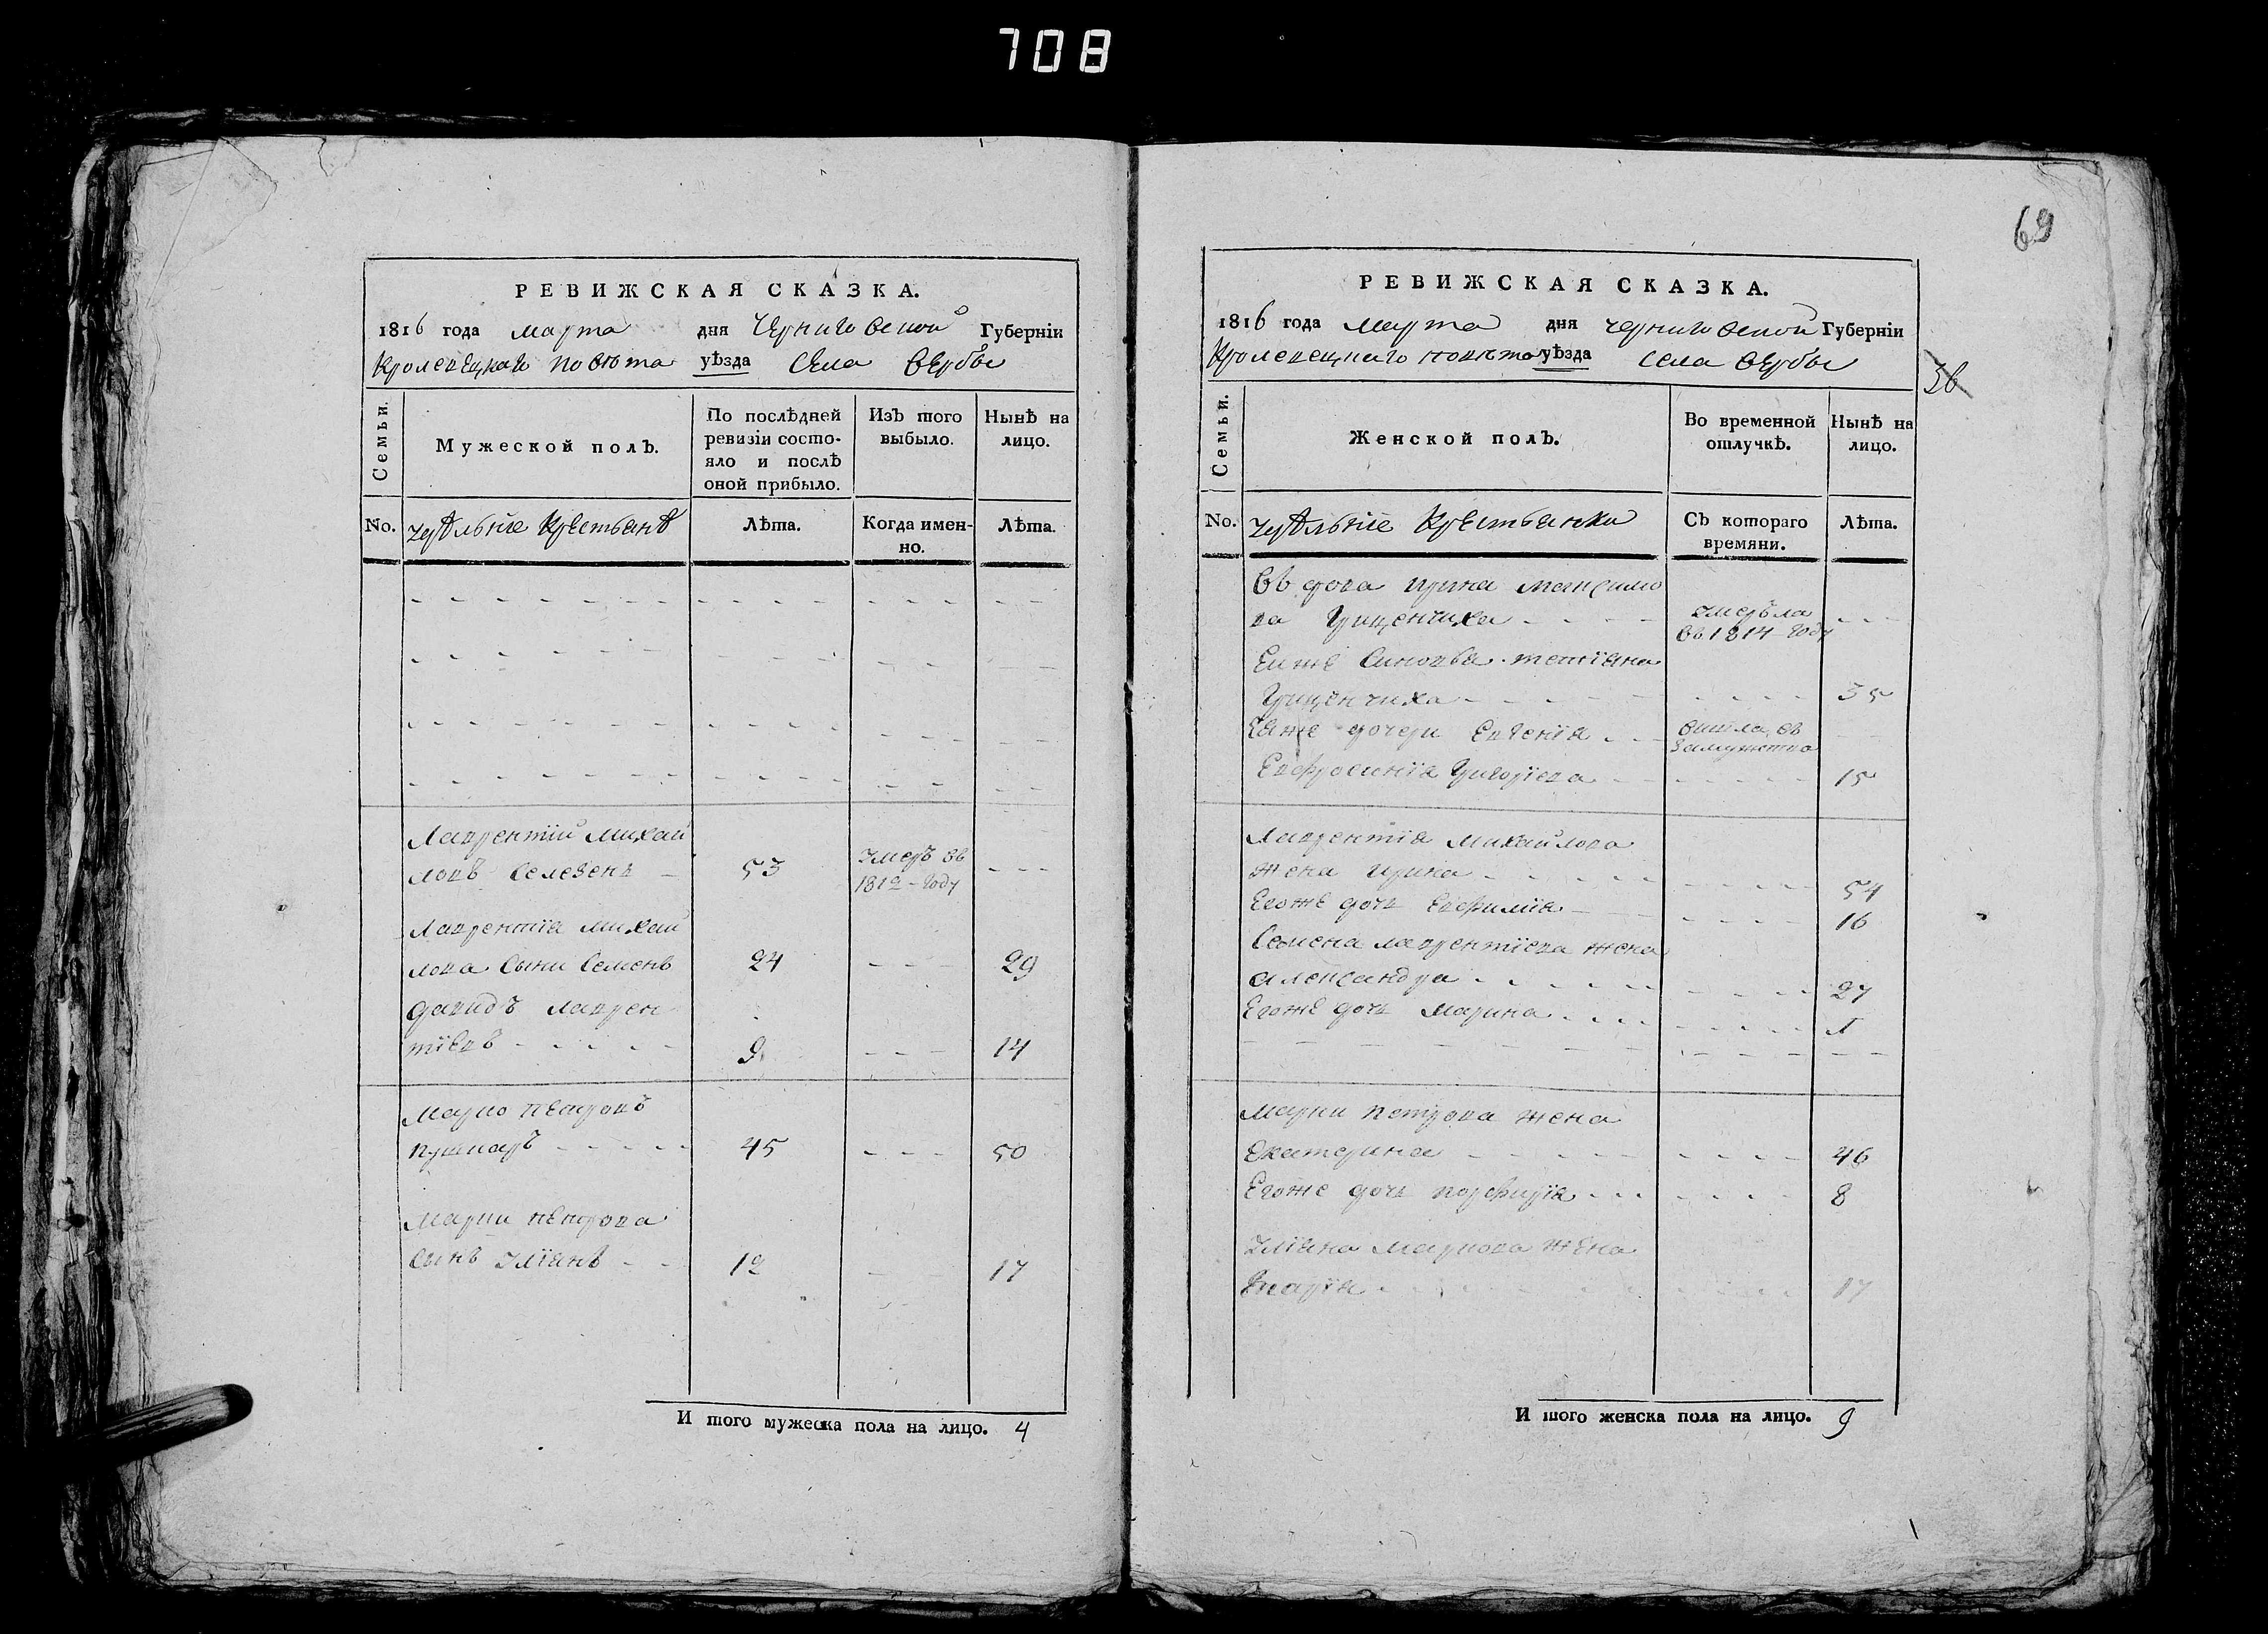 708
РЕВИЖСКАЯ СКАЗКА.
1816 года марта дня Черниговской Губерніи
Кролевецкаго повѣта уѣзда Села Вербы
Семьи.
Мужеской полЪ.
По послѣдней
ревизіи состо-
яло и послѣ
оной прибыло.
ИзЪ того
выбыло.
НынѢ на
лицо.
No.
удѣльніе крестьянѣ
ЛѢта.
Когда имен-
но.
ЛѢта.
Лаврентій михай
ловъ Селезень 53 умеръ въ
1812 году
Лаврентія михай
лова Сыни Семенъ 24 29
давидъ лаврен
тіевъ 9 14
Марко петровъ
пушкаръ 45 50
Марки петрова
Сынъ Уліянъ 12 17
И того мужеска пола на лицо. 4
69
РЕВИЖСКАЯ СКАЗКА.
1816 года марта дня черниговской Губерніи
Кролевецкаго повѣта уѣзда села вербы
36
Семьи.
Женской полЪ.
Во временной
отлучкѢ.
НынѢ на
лицо.
No.
удѣльніе крестьянки
СЪ котораго
времяни.
ЛѢта.
вдова ирина максимо
ва Грищенчиха умеръла
въ 1814 году
Еиже Синовва тетіяна
Грищенчиха 35
Еяже дочери Евгенія вишла въ
замужство
Евфросинія Григоріева 15
Лаврентія михайлова
жена ирина 54
Егоже дочь Евфимія 16
Семена лаврентіева жена
александра 27
Егоже дочь марина 1
Марки петрова жена
Екатерина 46
Егоже дочь порфирія 8
Уліяна маркова жена
марія 17
И того женска пола на лицо. 9